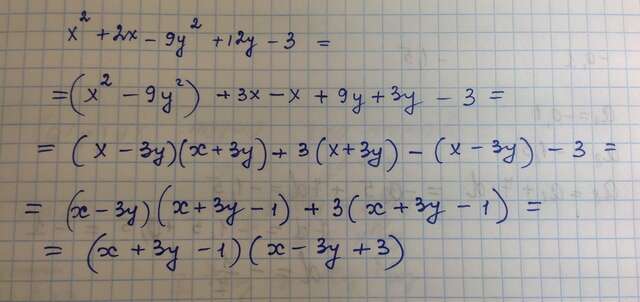 x² + 2x - 9y² + 12y - 3 =
= (x² - 9y²) + 3x - x + 9y + 3y - 3 =
= (x - 3y)(x + 3y) + 3(x + 3y) - (x - 3y) - 3 =
= (x - 3y)(x + 3y - 1) + 3(x + 3y - 1) =
= (x + 3y - 1)(x - 3y + 3)